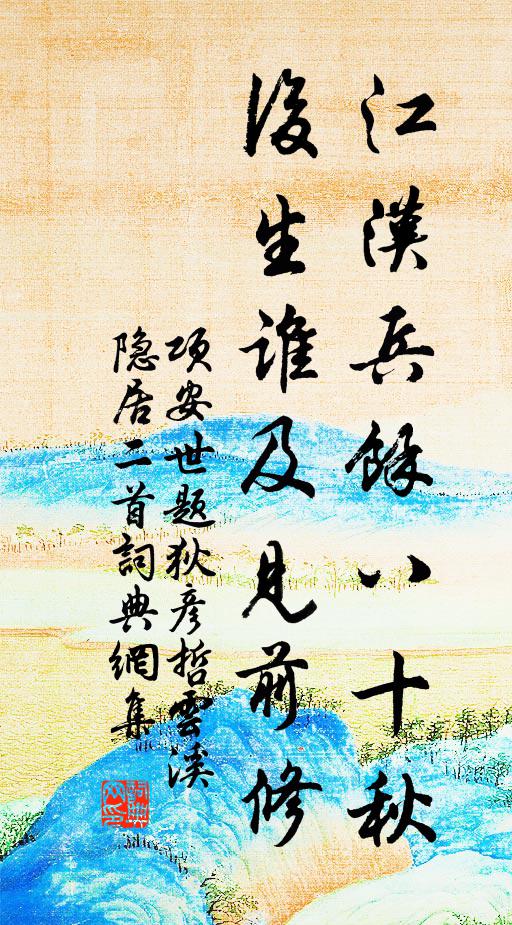 江漢兵餘八十秋
後生誰及見前修
项安世题狄彦哲雲溪
隐居二首詞典網集